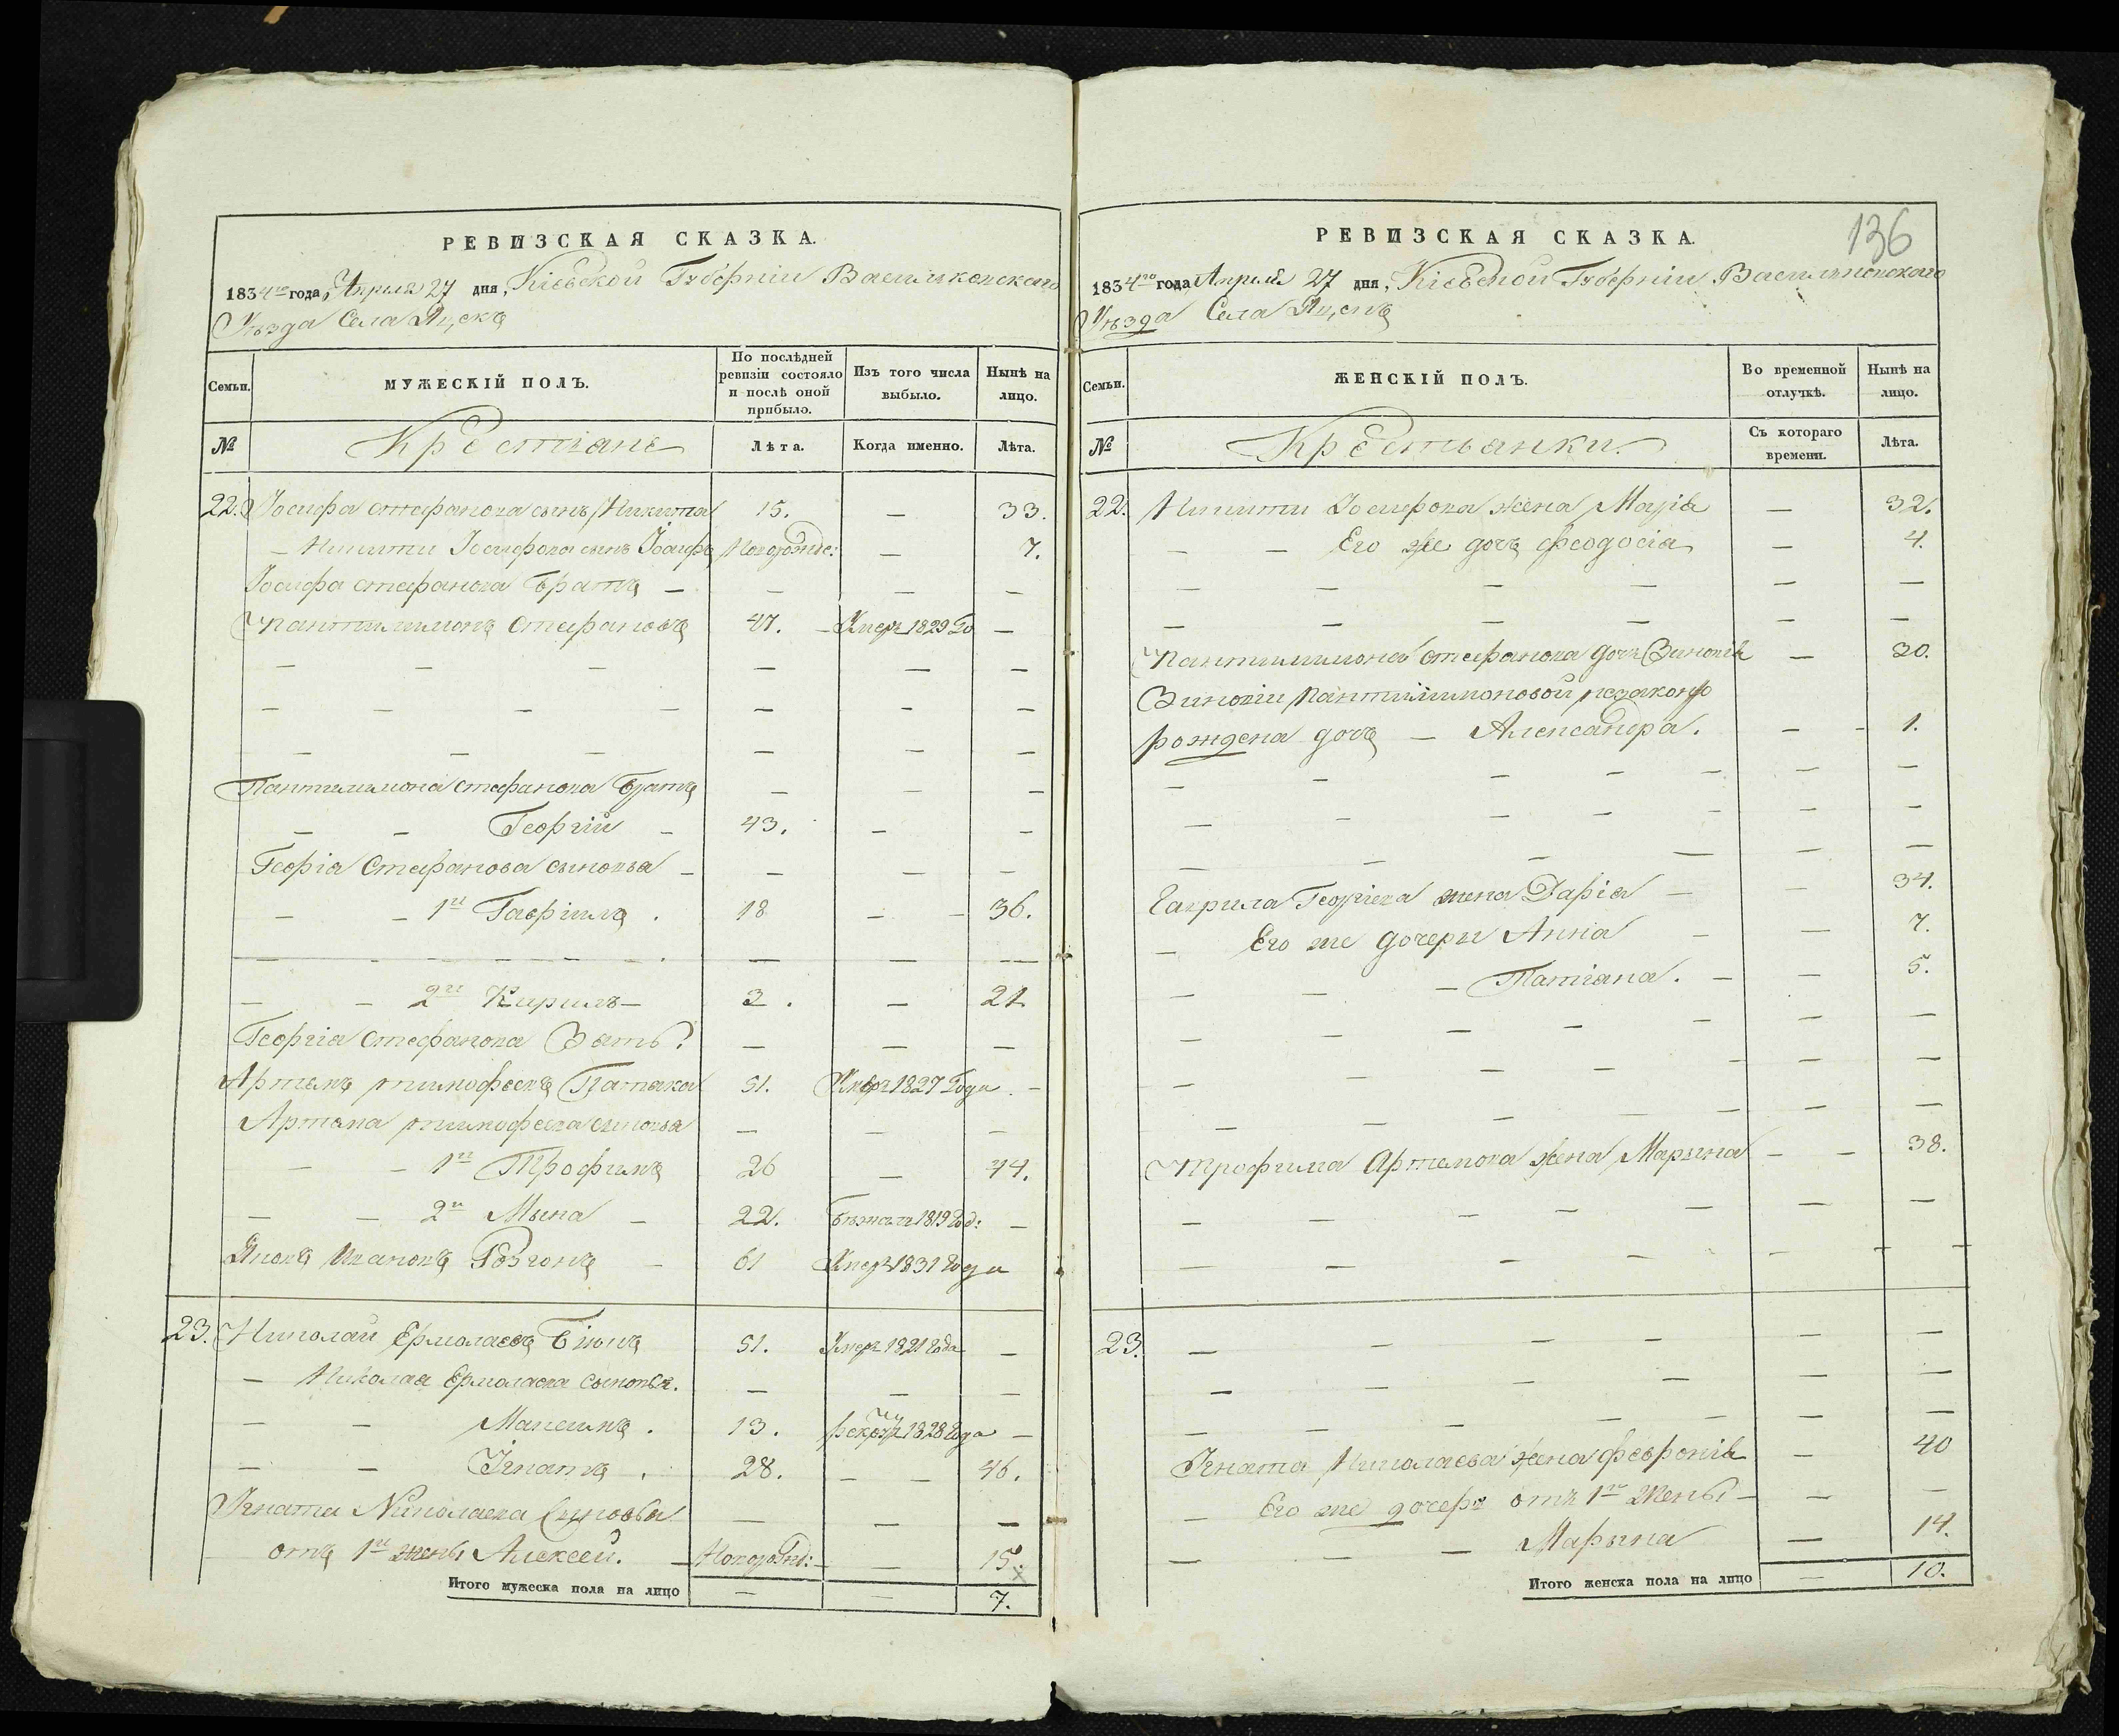 РЕВИЗСКАЯ СКАЗКА.
1834го года, Апреля 27 дня, Кіевской Губерніи Васильковскаго
Уѣзда Села Яцекъ
Семьи. МУЖЕСКІЙ ПОЛЪ. По послѣдней ревизіи состояло и послѣ оной прибыло. Изъ того числа выбыло. Нынѣ на лицо.
№ Крестіане Лѣта. Когда именно. Лѣта.
22. Іосифа стефанова сынъ Никита 15. — 33.
— Никити Іосифова сынъ Іосифъ Новорожде: — 7.
Іосифа стефанова братъ — — — —
Пантилимонъ стефановъ 47. — Умеръ 1829 Го —
— — — — — —
— — — — — — —
— — — — — —
Пантилимона стефанова братъ — — —
— — Георгій — 43. — —
Георгіа Стефанова сыновья — — — —
— — 1й Гавріилъ . 18 — — 36.
— — — — — — . — — —
— — 2й Кирилъ — 3 . — 21
Георгіа стефанова Зять? — — —
Артемъ тимофеевъ 51. Умеръ 1827 Года . —
Артема тимофеева сыновья — — —
— — 1й Трофимъ 26 — 44.
— — 2й Мына — 22. Бѣжалъ 1819 Год: —
Яковъ Ивановъ — 61 Умеръ 1831 Года
23. Николай Ермолаевъ 51. Умеръ 1821 Года —
— Николая Ермолаева сыновья. — — —
— — Максимъ . 13. 1828 Года —
— — Ігнатъ . 28. — — 46.
Ігната Николаева Сыновья — — —
отъ 1й жены Алексей. — Новорожд: — — 15.
Итого мужеска пола на лицо — — 7.
136
РЕВИЗСКАЯ СКАЗКА.
1834го года Апреля 27 дня, Кіевской Губерніи Васильковскаго
Уѣзда Села Яцекъ
Семьи. ЖЕНСКІЙ ПОЛЪ. Во временной отлучкѣ. Нынѣ на лицо.
№ Крестьянки. Съ котораго времени. Лѣта.
22. Никити Іосифова жена Марія — 32.
— — Его же дочь феодосіа — 4.
— — — — — —
— — — — — —
Пантилимона стефанова дочь Зиновія — 30.
Зиновіи пантилимоновой незаконо
рождена дочь — Александра. — — 1.
— — — — — — —
— — — — — —
— — — — — —
Гаврила Георгіева жена Даріа — — 34.
— Его же дочеры Анна — — 7.
— — — Татіана. — — 5.
— — — — — — —
— — — — — — —
— — — — — — —
Трофима Артемова жена Марына — — 38.
— — — — — — —
— — — — — — —
23. — — — — — —
— — — — — —
— — — — — — —
Ігната Николаева жена февронія — 40
— Его же дочерь отъ 1й жены — — —
— — — Марына — 14.
Итого женска пола на лицо — 10.